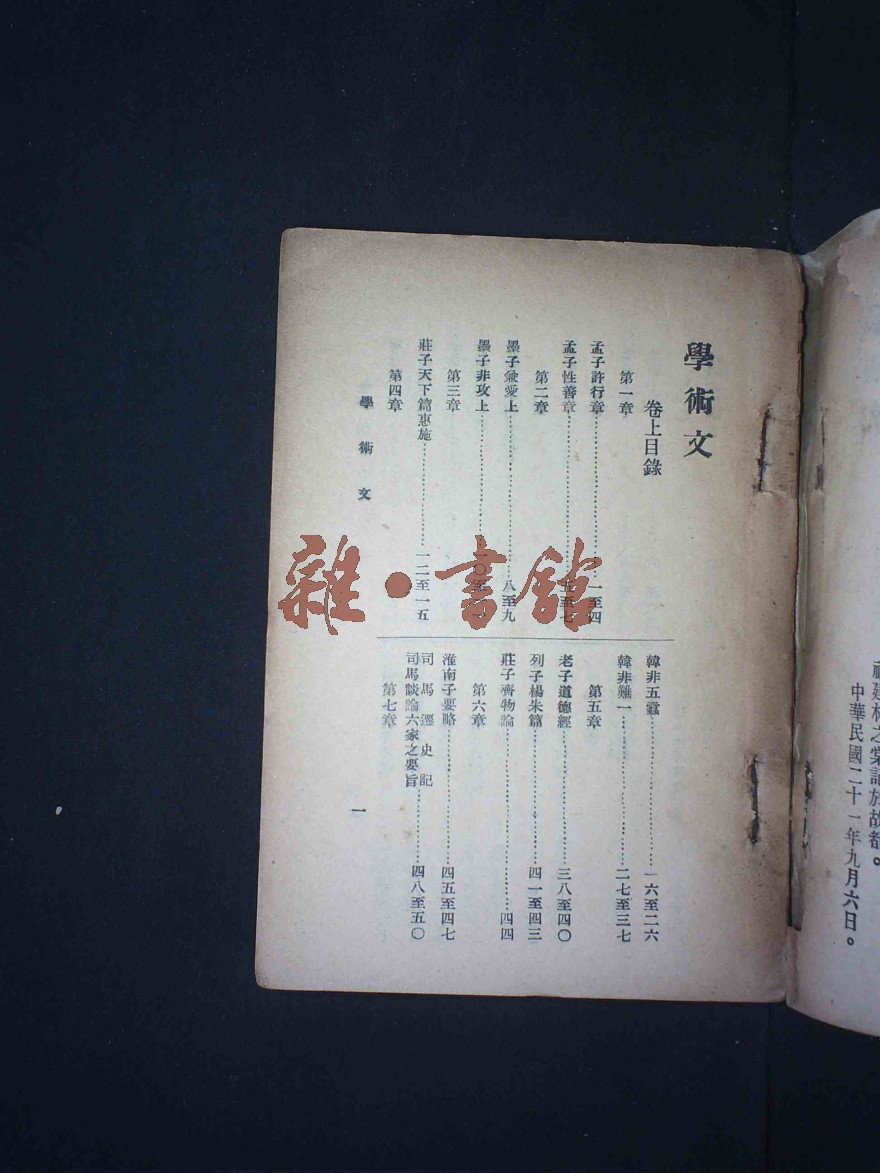 建林之棠記於故都。
中華民國二十一年九月六日。
學術文
卷上目錄
第一章
孟子許行章……一至四
孟子性善章……五至七
第二章
墨子兼愛上……八至九
墨子非攻上……一〇至
第三章
莊子天下篇惠施……一二至一五
第四章
韓非五蠹……一六至二六
韓非難一……二七至三七
第五章
老子道德經……三八至四〇
列子楊朱篇……四一至四三
莊子齊物論……四四
第六章
淮南子要略……四五至四七
司馬遷史記
司馬談論六家之要旨……四八至五〇
第七章
學術文
一
雜·書館